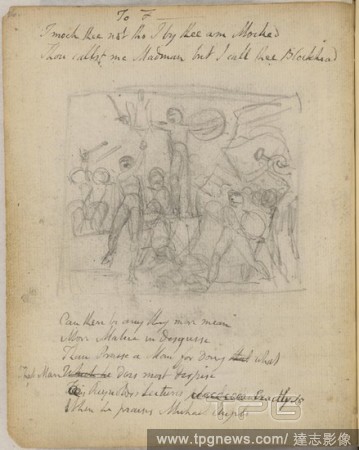 To F
I mock thee not tho I by thee am Mocked
Thou callst me Madman but I call thee Blockhead
Can there be any thing more mean
More Malice in disguise
Than Praise a Man for doing that what
That Man Which he does most despise
Reynolds Lectures Exactly so
When he praises Michael Angelo
TPG
www.tpgnews.com | 達志影像